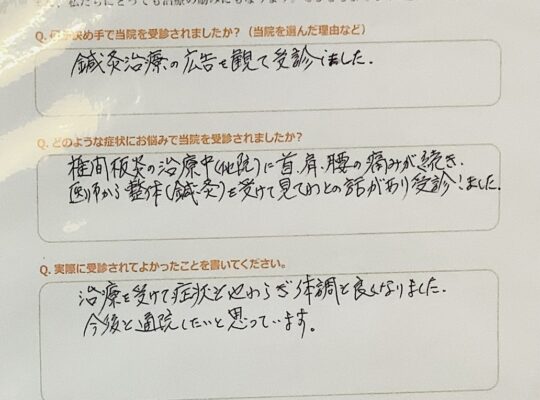 Q. 何が決め手で当院を受診されましたか？（当院を選んだ理由など）
鍼灸治療の広告を観て受診しました.
Q. どのような症状にお悩みで当院を受診されましたか？
椎間板炎の治療中(他院)に首、肩、腰の痛みが続き、
医師から整体(鍼・灸)を受けて見てわとの話があり受診しました.
Q. 実際に受診されてよかったことを書いてください。
治療を受けて症状もやわらぎ体調も良くなりました.
今後も通院したいと思っています。